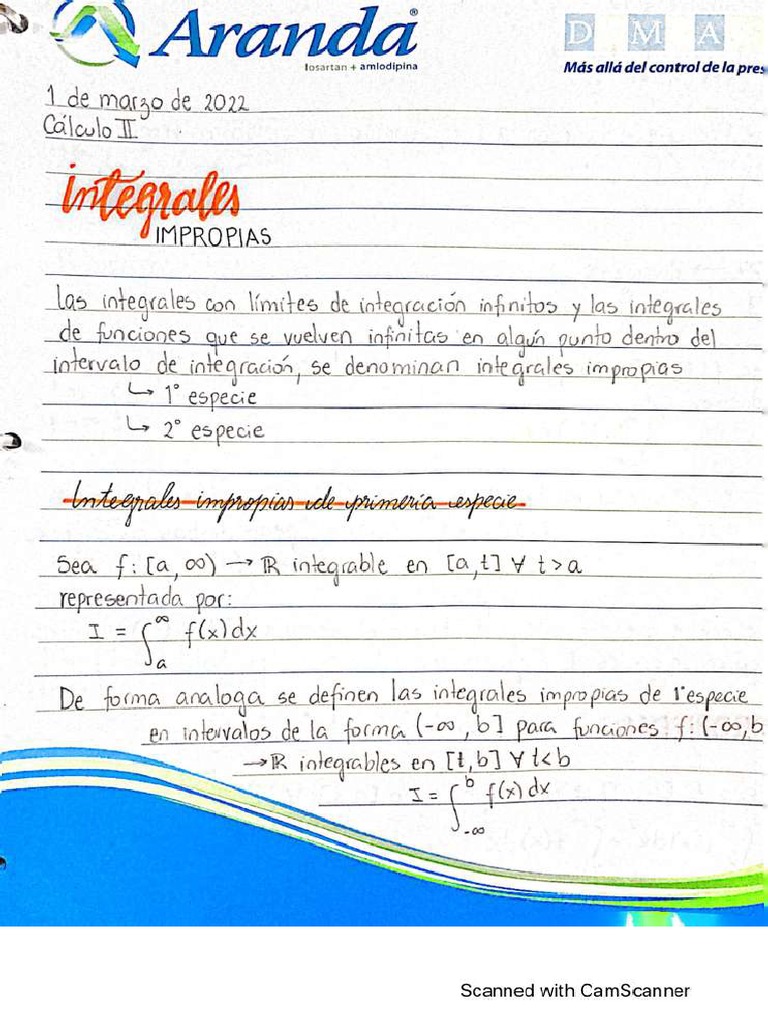 Aranda®
losartan + amlodipina
D M A
Más allá del control de la pres
1 de marzo de 2022
Cálculo II.
integrales
IMPROPIAS
Las integrales con límites de integración infinitos y las integrales
de funciones que se vuelven infinitas en algún punto dentro del
intervalo de integración, se denominan integrales impropias
↳ 1° especie
↳ 2° especie
Integrales impropias de primera especie
Sea f: [a, ∞) → ℝ integrable en [a,t] ∀ t>a
representada por:
I = ∫ₐ^∞ f(x)dx
De forma analoga se definen las integrales impropias de 1°especie
en intervalos de la forma (-∞, b] para funciones f: (-∞,b
→ℝ integrables en [t,b] ∀ t<b
I = ∫_-∞^b f(x)dx
Scanned with CamScanner